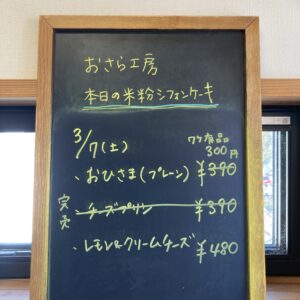 おさら工房
本日の米粉シフォンケーキ
3/7(土)
ワケ有品
300円
・おひさま(プレーン) ¥390
完売
・チーズプリン ¥390
・レモン&クリームチーズ ¥480